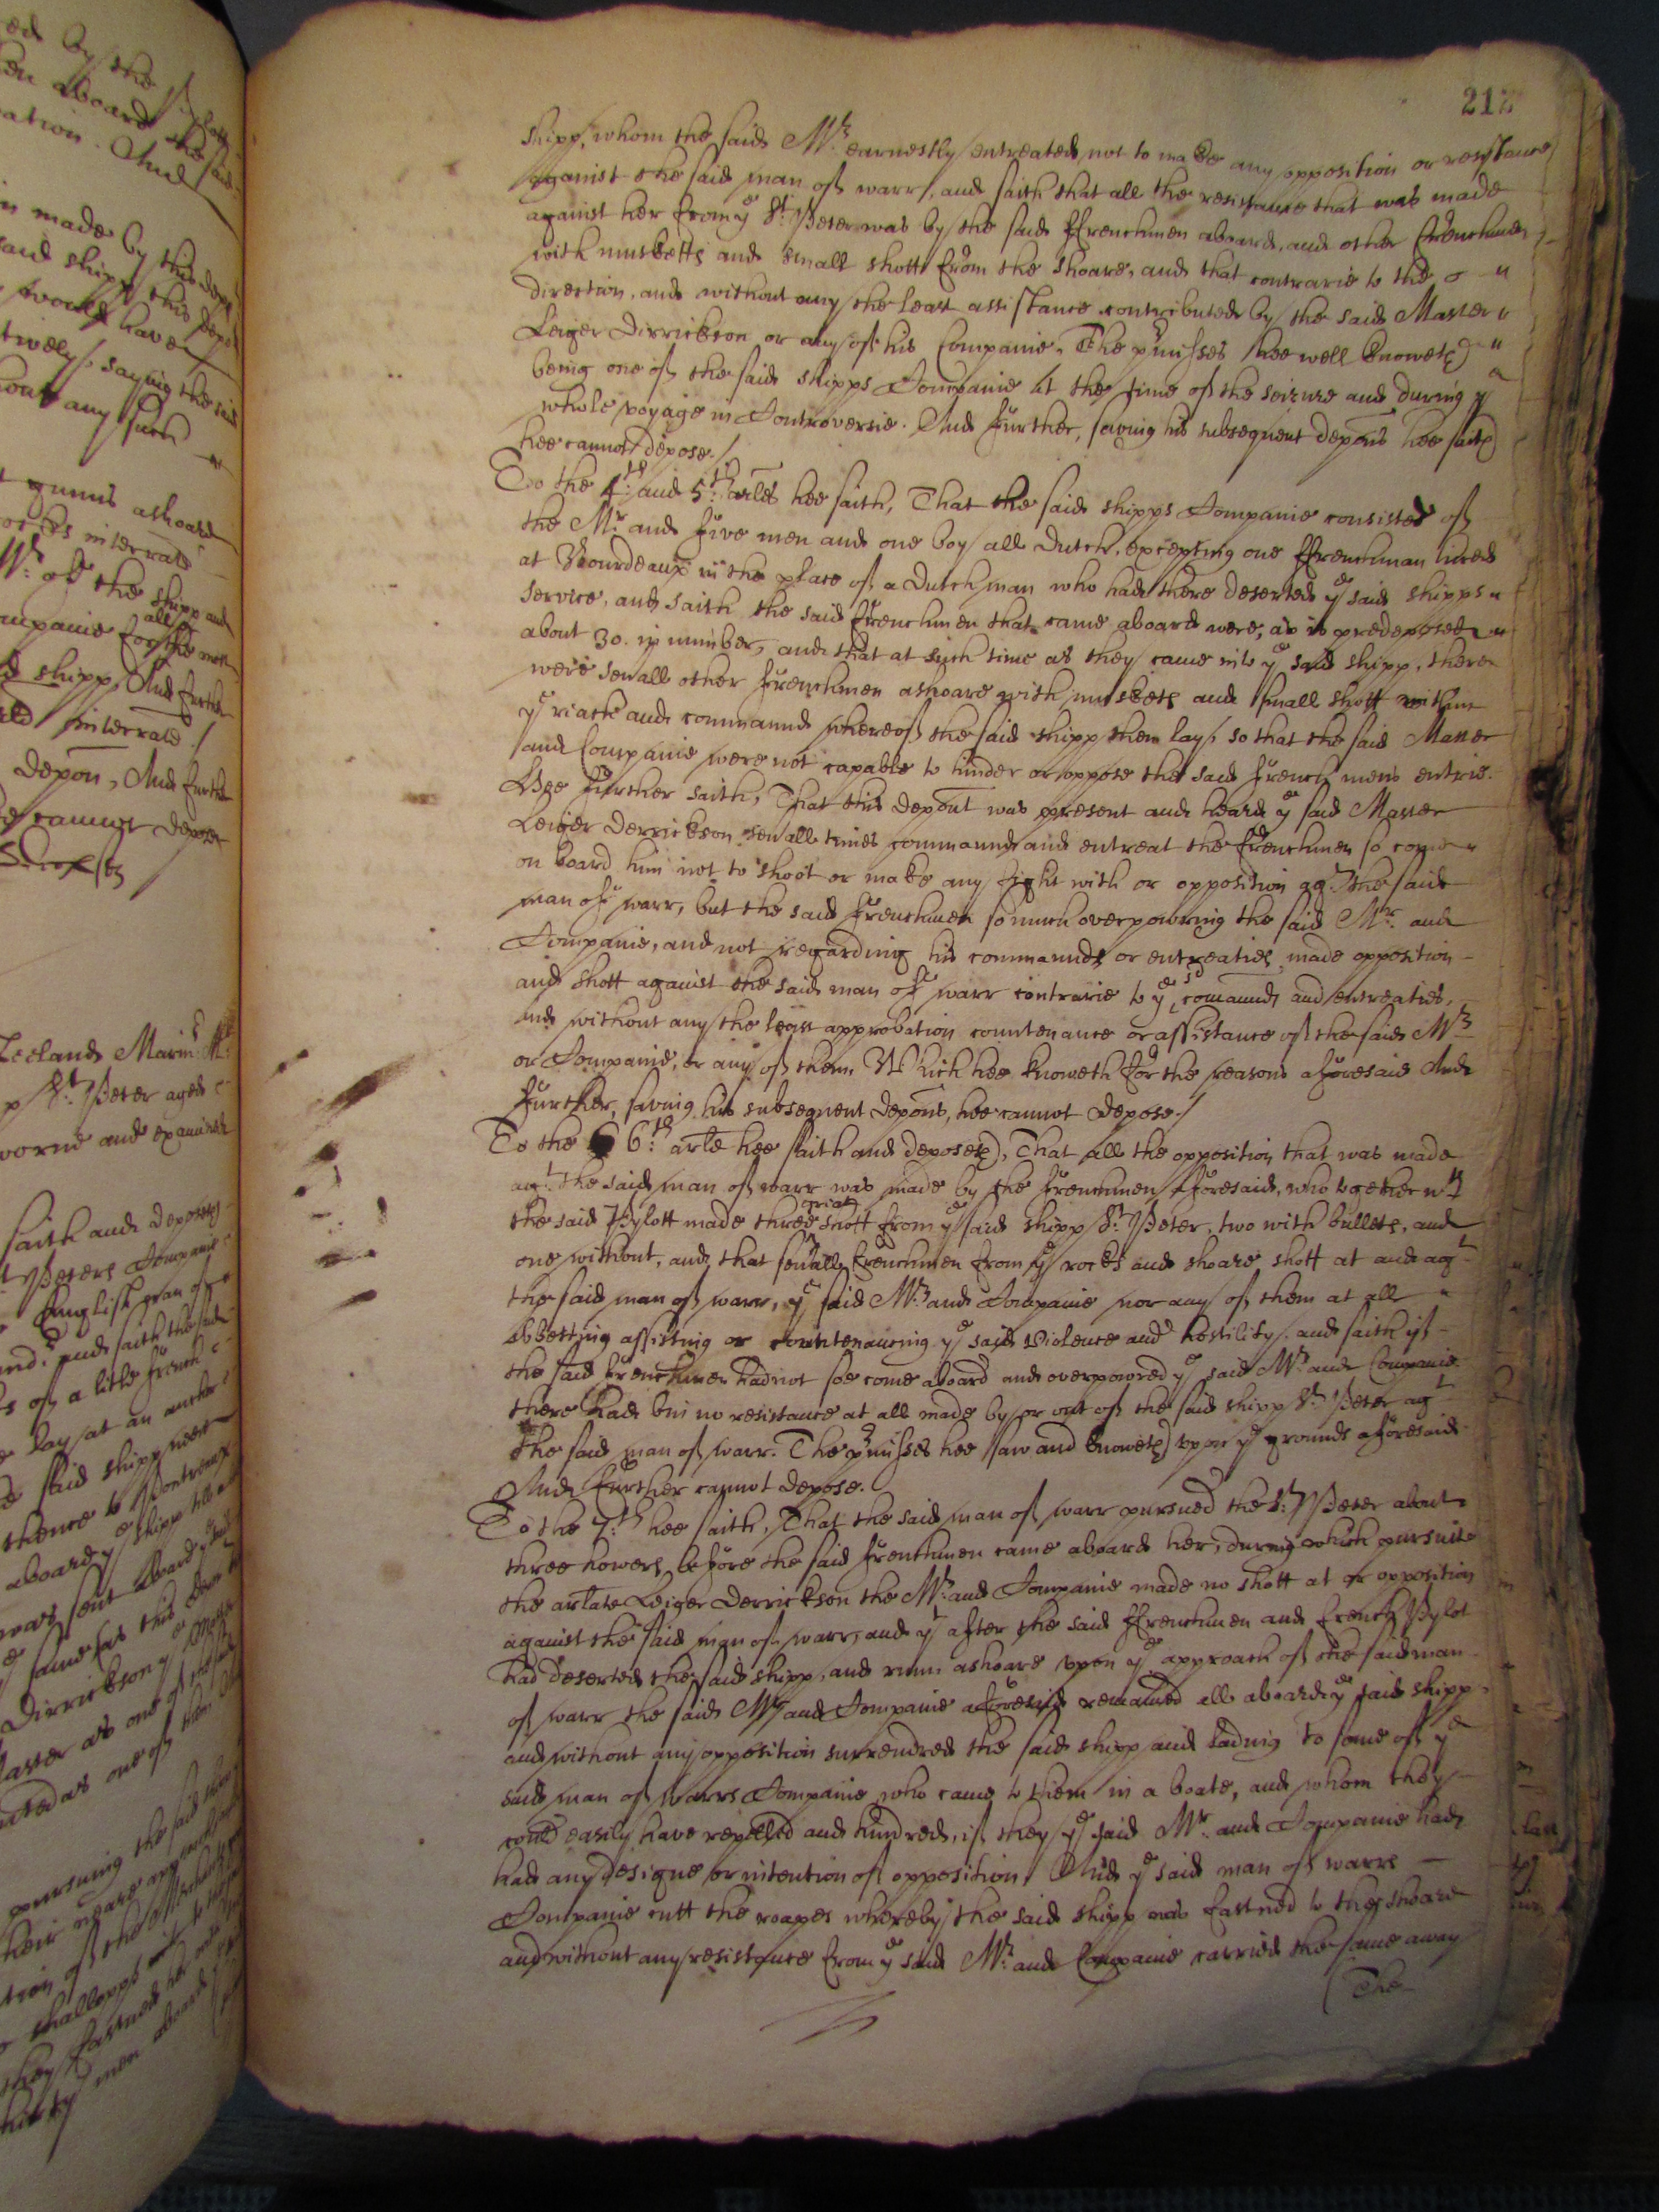 212
shipp, whom the said Mr. earnestly entreated not to make any opposition or resistance
against the said man of warr, and saith that all the resistance that was made
against her from ye St. Peter was by the said ffrenchmen aboard, and other ffrenchmen
with musketts and small shott from the shoare, and that contrarie to the
direction, and without any the least assistance contributed by the said Master
Leiger Dirrickson or any of his Companie. The premisses hee well knoweth
being one of the said shipps Companie at the time of the seizure and during ye
whole voyage in Controversie. And further, saving his subsequent deposns hee saith
hee cannot depose./
To the 4th: and 5th: arles hee saith, That the said shipps Companie consisted of
the Mr. and five men and one boy all Dutch, excepting one ffrenchman hired
at Bourdeaux in the place of a Dutch man who had there deserted ye said shipps
service, and saith the said ffrenchmen that came aboard were, as is predeposed
about 30. in number, and that at such time as they came into ye said shipp, there
were severall other ffrenchmen ashoare with muskets and small shott within
ye reach and command whereof the said shipp then lay, so that the said Master
and Companie were not capable to hinder or oppose the said french mens entrie.
Hee further saith, That this deponent was present and heard ye said Master
Leiger Derrickson severall times command and entreat the ffrenchmen so come
on board him not to shoot or make any fight with or opposition agt the said
man of warr, but the said ffrenchmen so much overpowring the said Mr. and
Companie, and not regarding his commands or entreaties made opposition
and shott against the said man of warr contrarie to ye sd comands and entreaties,
and without any the least approbation countenance or assistance of the said Mr.
or Companie, or any of them. Which hee knoweth for the reasons aforesaid And
further, saving his subsequent deposns, hee cannot depose./
To the 6th: arle hee saith and deposeth, That all the opposition that was made
agt. the said man of warr was made by the ffrenchmen aforesaid, who together wth
the said Pylott made three great shott from ye said shipp St. Peter, two with bullets, and
one without, and that severall ffrenchmen from ye rocks and shoare shott at and agt
the said man of warr, ye said Mr. and Companie nor any of them at all
abbetting assisting or countenancing ye said violence and hostility. and saith if
the said ffrenchmen had not soe come aboard and overpowred ye said Mr. and Companie
there had bin no resistance at all made by or out of the said shipp St. Peter agt
the said man of warr. The premisses hee saw and knoweth upon ye grounds aforesaid
And further cannot depose.
To the 7th: hee saith, That the said man of warr pursued the St: Peter about
three howers before the said ffrenchmen came aboard her, during which pursuite
the arlate Leiger Derrickson the Mr. and Companie made no shott at or opposition
against the said man of warr, and yt after the said ffrenchmen and french Pylot
had deserted the said shipp, and runn ashoare upon ye approach of the said man
of warr the said Mr and Companie aforesaid remained all aboard ye said shipp
and without any opposition surrendred the said shipp and lading to some of ye
said man of warrs Companie who came to them in a boate, and whom they
could easily have repelled and hindred, if they ye said Mr. and Companie had
had any designe or intention of opposition. And ye said man of warrs
Companie cutt the roapes whereby the said shipp was fastned to the shoare
and without any resistance from ye said Mr. and Companie carried the same away
The